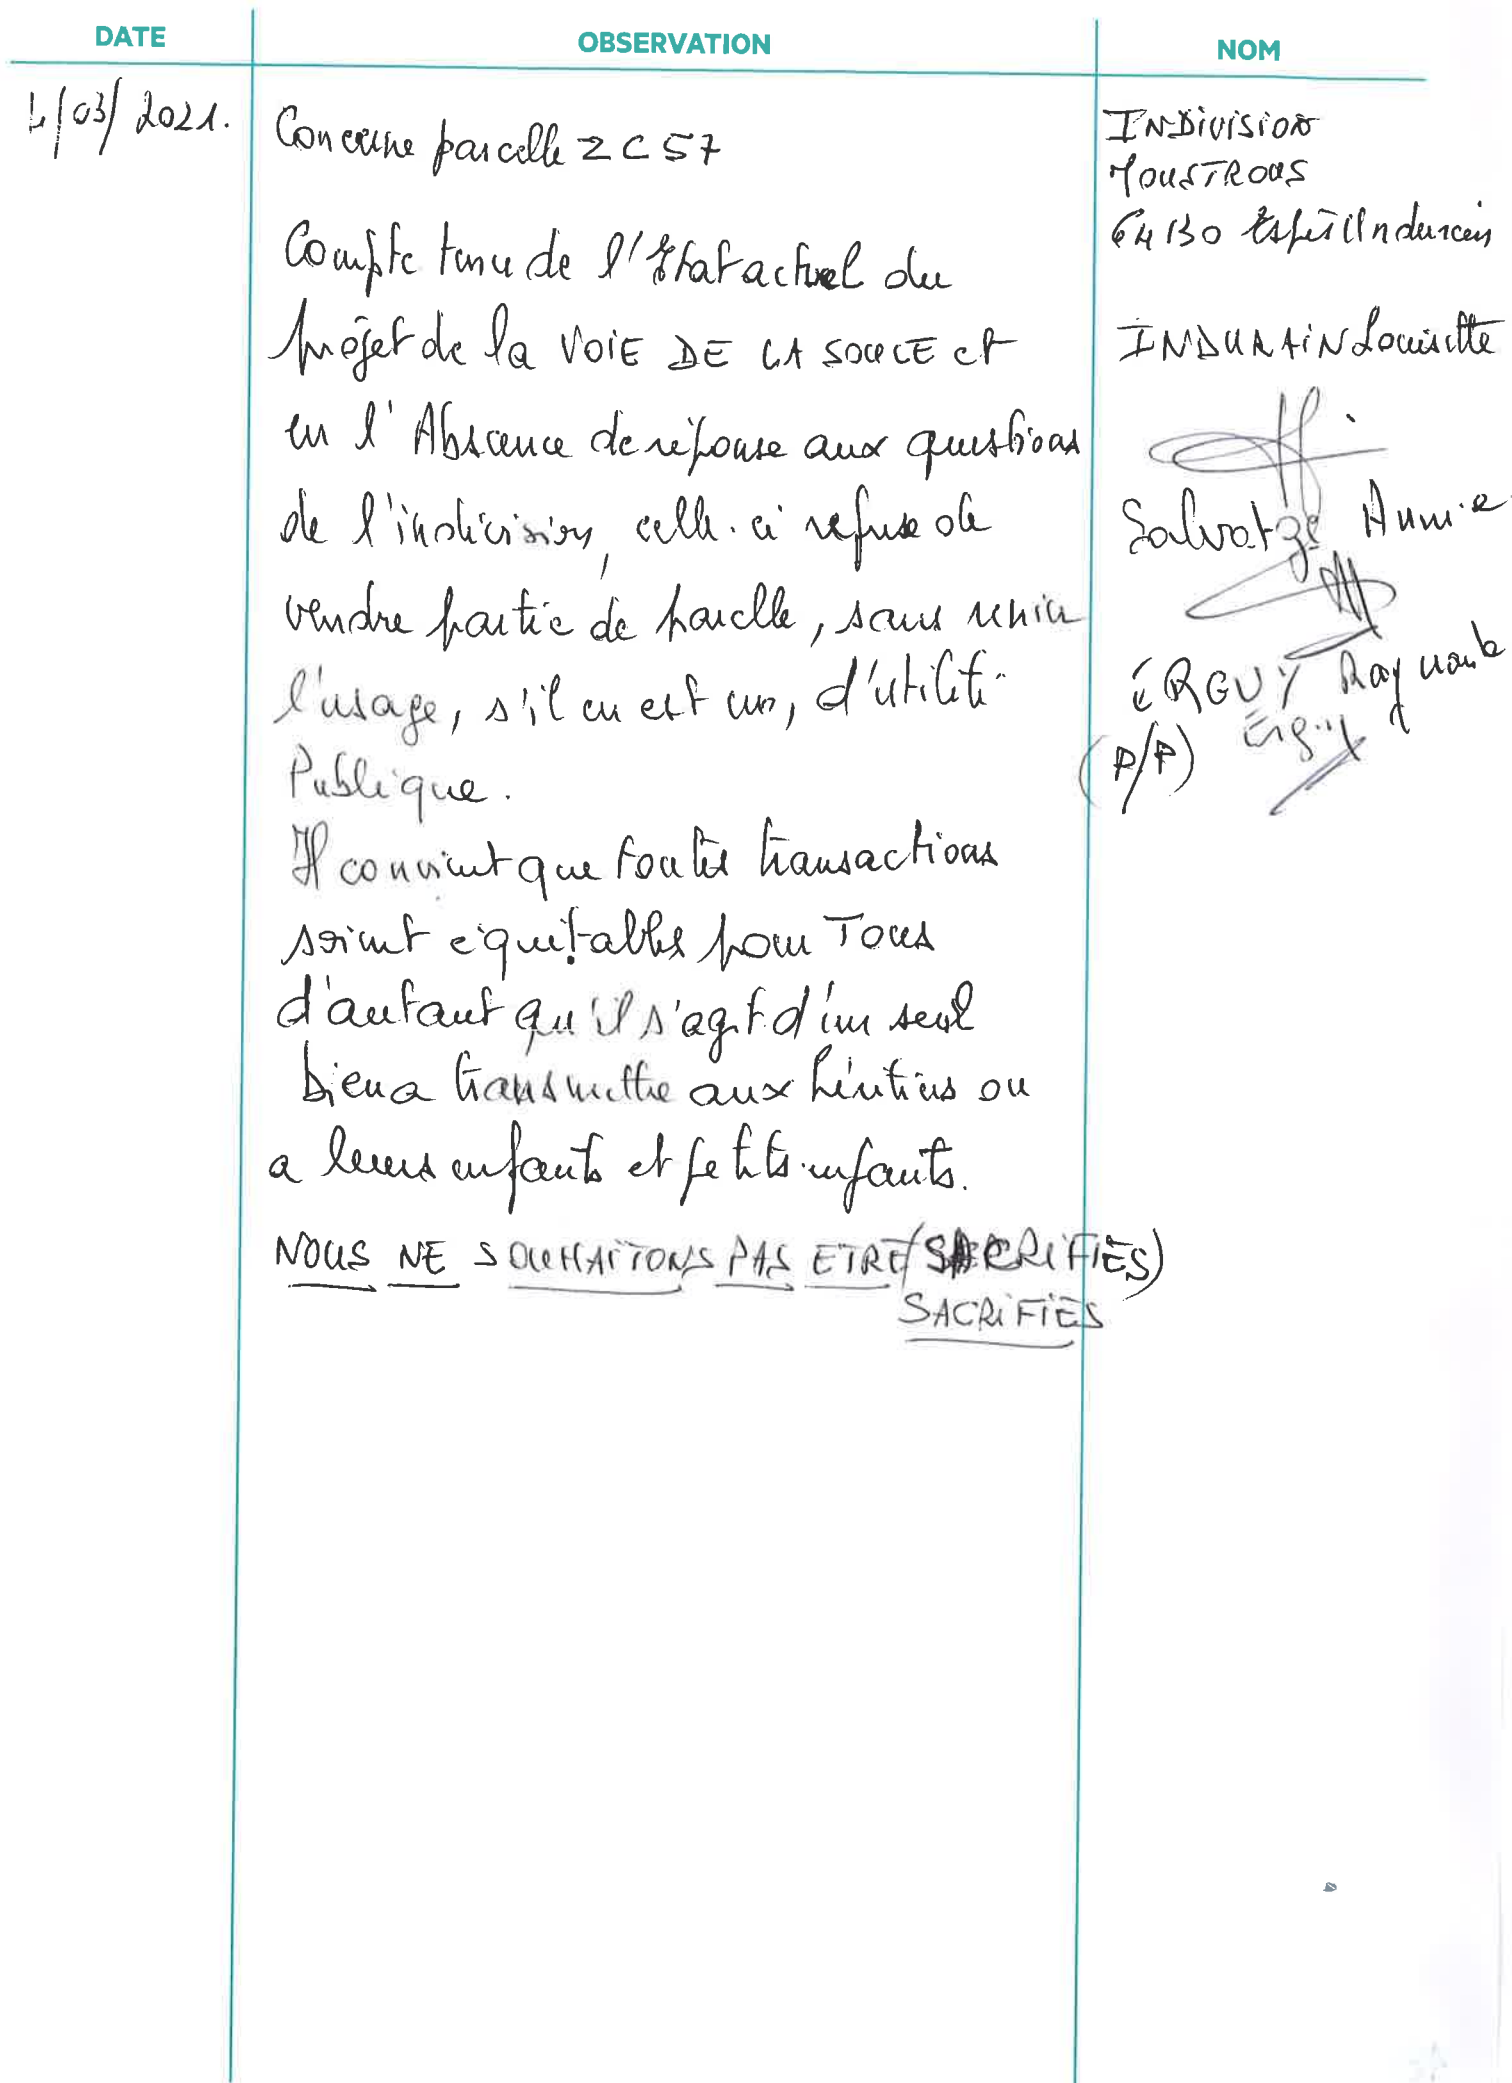 DATE
OBSERVATION
NOM
4/03/2021.
Concerne parcelle ZC57
Compte tenu de l'Etat actuel du
projet de la VOIE DE LA SOURCE et
en l'Absence de réponse aux questions
de l'indivision, celle-ci refuse de
vendre partie de parcelle, sans
l'usage, s'il en est un, d'utilité
Publique.
Il convient que toutes transactions
soient équitables pour Tous
d'autant qu'il s'agit d'un seul
bien a transmettre aux héritiers ou
a leurs enfants et petits-enfants.
NOUS NE SOUHAITONS PAS ETRE (SACRIFIÉS)
SACRIFIÉS
INDIVISION
MOUSTROUS
64130 Espès Undurein
INDURAIN Louisette
Annie
ERGUY Raymonde
(P/P) Erguy